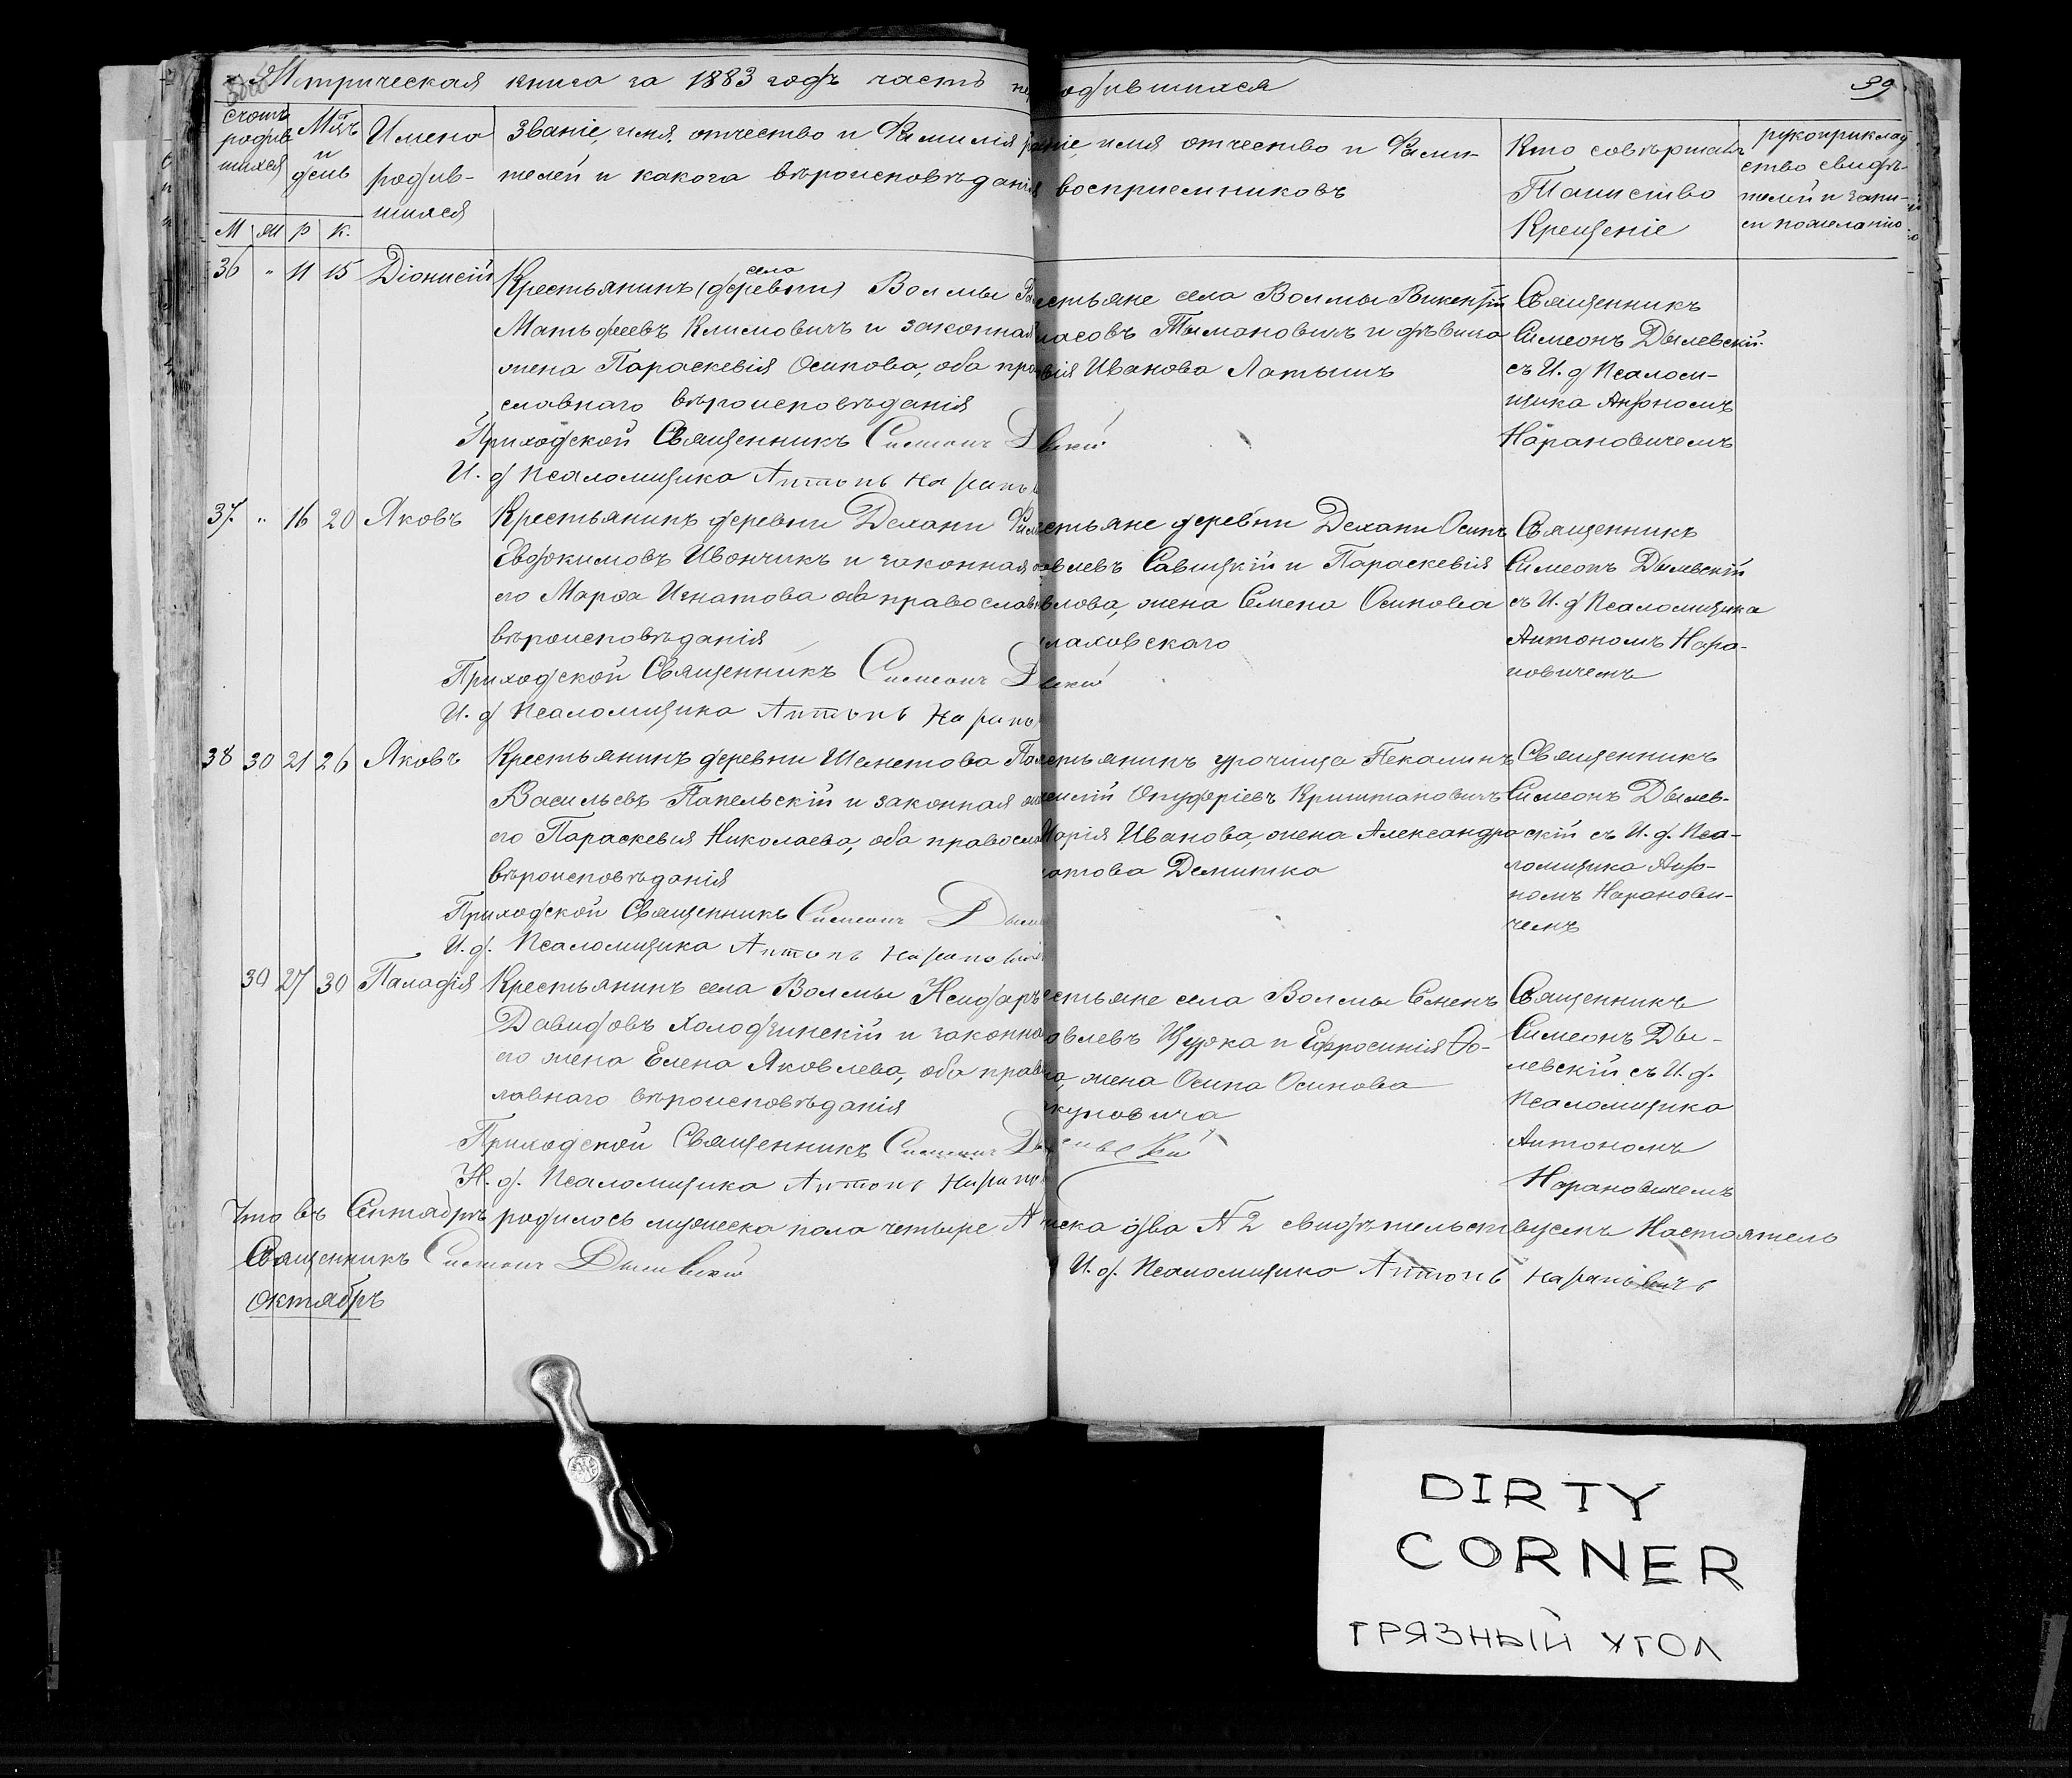 Метрическая книга за 1883 годъ часть
одившихся
39
счотъ родив шихся
М м
Мѣць и день
Р К.
Имена родив- шихся
Званіе, имя, отчество и Фамилія ро
телей и какога вѣроисповѣданія
ніе, имя отчество и Фами-
восприемниковъ
Кто совѣршалъ
Таинство
Крещеніе
рукоприклад
ство свидѣ-
телей и запи-
си пожеланию
36 " 11 15 Діонисій
село
Крестьянинъ (деревни) Волмы
Матьфеевъ Климовичъ и законная
жена Параскевія Осипова, оба пра
славнаго вѣроисповѣданія
Приходской Священникъ Симеонъ
И. д Псаломщика Антонъ Нарано
естьяне села Волмы Викентій
расовъ Тымановичъ и дѣвица
вія Иванова Латышъ
вскій
Священникъ
Симеонъ Дылевскій
съ И. д Псалом-
щика Антономъ
Нарановичемъ
37. " 16 20 Яковъ
Крестьянинъ деревни Дехани
Евдокимовъ Ивончикъ и законная
его Марѳа Игнатова оба православн
вѣроисповѣданія
Приходской Священникъ Симеонъ Д
И. д Псаломщика Антонъ Нарано
естьяне деревни Дехани Осипъ
овлевъ Савицкій и Параскевія
влова, жена Семена Осипова
лаховскаго
вскій
Священникъ
Симеонъ Дылевскій
съ И. д Псаломщика
Антономъ Нара-
новичемъ
38 30 21 26 Яковъ
Крестьянинъ деревни Шеметова
Васильевъ Папельскій и законная
его Параскевія Николаева, оба правосла
вѣроисповѣданія
Приходской Священникъ Симеонъ Дыле
И. д. Псаломщика Антонъ Наранович
естьянинъ урочища Пекалинъ
Онуфріевъ Криштановичъ
Марія Иванова, жена Александра
Демитка
Священникъ
Симеонъ Дылев-
скій съ И. д. Пса-
ломщика Анто-
номъ Наранови-
чемъ
39 27 30 Палафія
Крестьянинъ села Волмы
Давидовъ Холодзинскій и законна
его жена Елена Яковлева, оба прав
лавнаго вѣроисповѣданія
Приходской Священникъ Симеонъ Ды
И. д. Псаломщика Антонъ Нарано
естьяне села Волмы Семенъ
овлевъ Щурка и Ефросинія Ѳо-
ва, жена Осипа Осипова
куновича
левскій
Священникъ
Симеонъ Ды-
левскій съ И. д.
Псаломщика
Антономъ
Нарановичемъ
Что въ Сентябрѣ родилось мужеска пола четыре
нска два № 2 свидѣтельствуемъ Настоятель
Священникъ Симеонъ Дылевскій
И. д. Псаломщика Антонъ Нарановичъ
Октябрь
DIRTY
CORNER
ГРЯЗНЫЙ УГОЛ